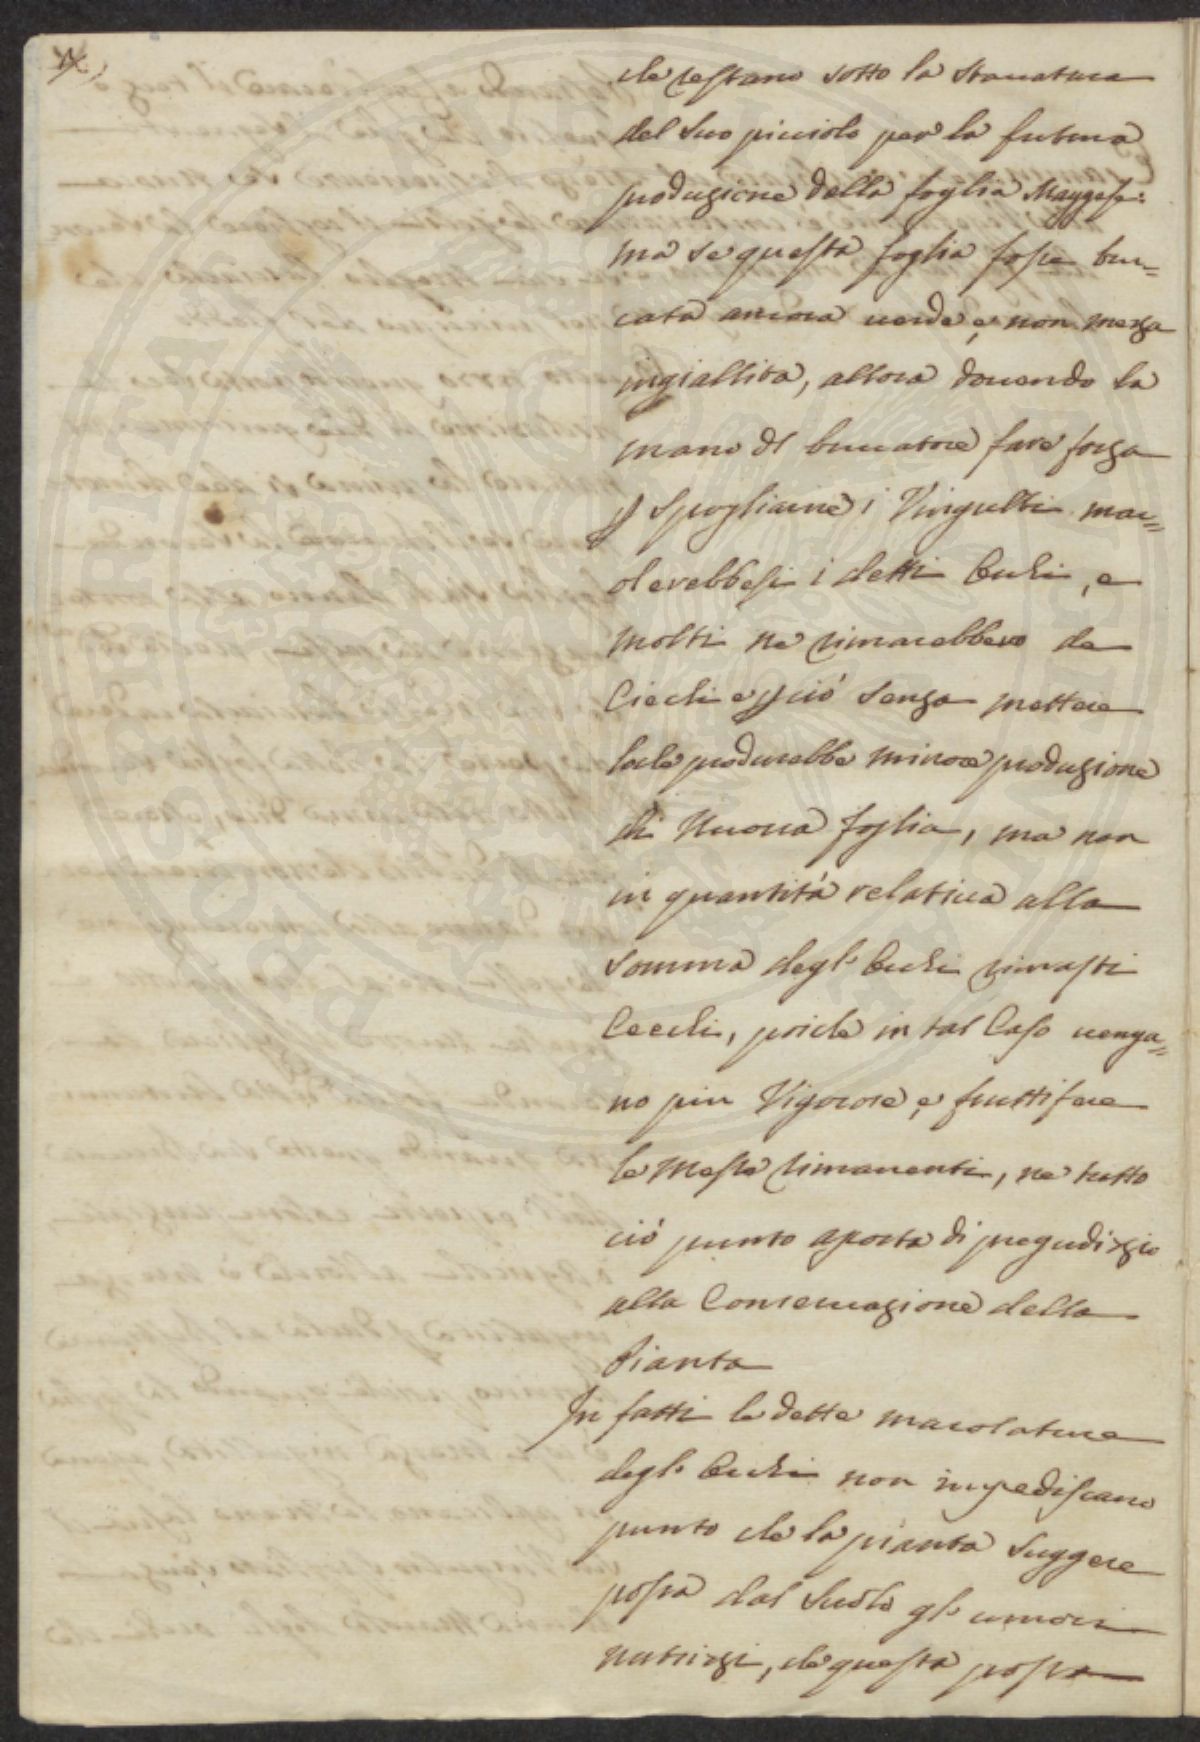 che restano sotto la stauatura
del suo picciolo per la futura
produzione della foglia Maggese:
ma se questa foglia fosse bru=
cata ancora uerde e non mezza
ingiallita, allora douendo la
mano del brucatore fare forza
p spogliarne i Vingulti mac=
olerebbesi i detti Occhi, e
molti ne rimarebbero de
Ciechi e p ciò senza mettere
loche produrebbe minore produzione
di Nuoua foglia, ma non
in quantità relatiua alla
somma degl' Occhi rimasti
Ceechi, poiche in tal Caso uenga=
no piu Vigorose e fruttifere
le Messe rimanenti, ne tutto
ciò punto aporta di pregudizio
alla Conseruazione della
Pianta
In fatti le dette macolature
degl' Occhi non impediscano
punto che la pianta suggere
possa dal suolo gl' umori
nutrizi, che questa possa
PATRIAE